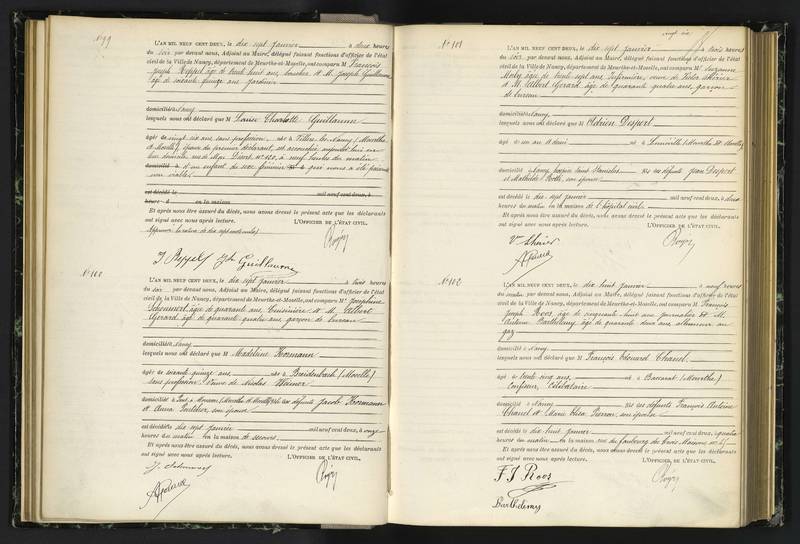 N° 99
L'AN MIL NEUF CENT DEUX, le dix sept janvier à deux heures
du soir par devant nous, Adjoint au Maire, délégué faisant fonctions d'officier de l'état
civil de la Ville de Nancy, département de Meurthe-et-Moselle, ont comparu M. François
Joseph âgé de trente huit ans, et M. Joseph Guillaume
âgé de soixante quinze ans jardinier
domiciliés à Nancy
lesquels nous ont déclaré que M Louise Charlotte Guillaume
âgée de vingt six ans sans profession née à Villers-les-Nancy (Meurthe
et Moselle), épouse du premier déclarant, est accouchée aujourd'hui en
son domicile rue de à neuf heures du matin
domicilié à d'un enfant de sexe féminin qui nous a été présenté
non viable
est décédé le mil neuf cent deux, à
heure d en la maison
Et après nous être assuré du décès, nous avons dressé le présent acte que les déclarants
ont signé avec nous après lecture. L'OFFICIER DE L'ÉTAT CIVIL,
Guillaume
N° 100
L'AN MIL NEUF CENT DEUX, le dix sept janvier à trois heures
du soir par devant nous, Adjoint au Maire, délégué faisant fonctions d'officier de l'état
civil de la Ville de Nancy, département de Meurthe-et-Moselle, ont comparu M. Joséphine
âgée de quarante ans, Cuisinière et M. Albert
Gérard âgé de quarante quatre ans garçon de bureau
domiciliés à Nancy
lesquels nous ont déclaré que M Madeleine Hormann
âgée de soixante quinze ans née à Breidenbach (Moselle)
sans profession Veuve de Nicolas
domiciliée à (Meurthe et Moselle) fille des défunts Jacob Hormann
et Anna son épouse
est décédée le dix sept janvier mil neuf cent deux, à onze
heures du matin en la maison de secours
Et après nous être assuré du décès, nous avons dressé le présent acte que les déclarants
ont signé avec nous après lecture. L'OFFICIER DE L'ÉTAT CIVIL,
N° 101
L'AN MIL NEUF CENT DEUX, le dix sept janvier à trois heures
du soir par devant nous, Adjoint au Maire, délégué faisant fonctions d'officier de l'état
civil de la Ville de Nancy, département de Meurthe-et-Moselle, ont comparu Mᵉ Suzanne
âgée de trente sept ans Infirmière, veuve de Victor
et M. Albert Gérard, âgé de quarante quatre ans, garçon
de bureau
domiciliés à Nancy
lesquels nous ont déclaré que M Adrien Despert
âgé de un an et demi né à Lunéville (Meurthe et Moselle)
domicilié à Nancy, hospice Saint Stanislas fils des défunts Jean Despert
et Mathilde son épouse
est décédé le dix sept janvier mil neuf cent deux, à deux
heures du matin en la maison de l'hôpital civil
Et après nous être assuré du décès, nous avons dressé le présent acte que les déclarants
ont signé avec nous après lecture. L'OFFICIER DE L'ÉTAT CIVIL,
N° 102
L'AN MIL NEUF CENT DEUX, le dix huit janvier à neuf heures
du matin par devant nous, Adjoint au Maire, délégué faisant fonctions d'officier de l'état
civil de la Ville de Nancy, département de Meurthe-et-Moselle, ont comparu M. François
Joseph Roos, âgé de cinquante huit ans journalier et M.
Barthélemy, âgé de quarante deux ans allumeur au
gaz
domiciliés à Nancy
lesquels nous ont déclaré que M François Edouard Chanel
âgé de trente cinq ans né à Baccarat (Meurthe)
confiseur, Célibataire
domicilié à Nancy fils des défunts François Antoine
Chanel et Marie Elisa Pierron, son épouse
est décédé le dix huit janvier mil neuf cent deux, à quatre
heures du matin en la maison rue du faubourg des trois Maisons
Et après nous être assuré du décès, nous avons dressé le présent acte que les déclarants
ont signé avec nous après lecture. L'OFFICIER DE L'ÉTAT CIVIL,
F J Roos
Barthélemy